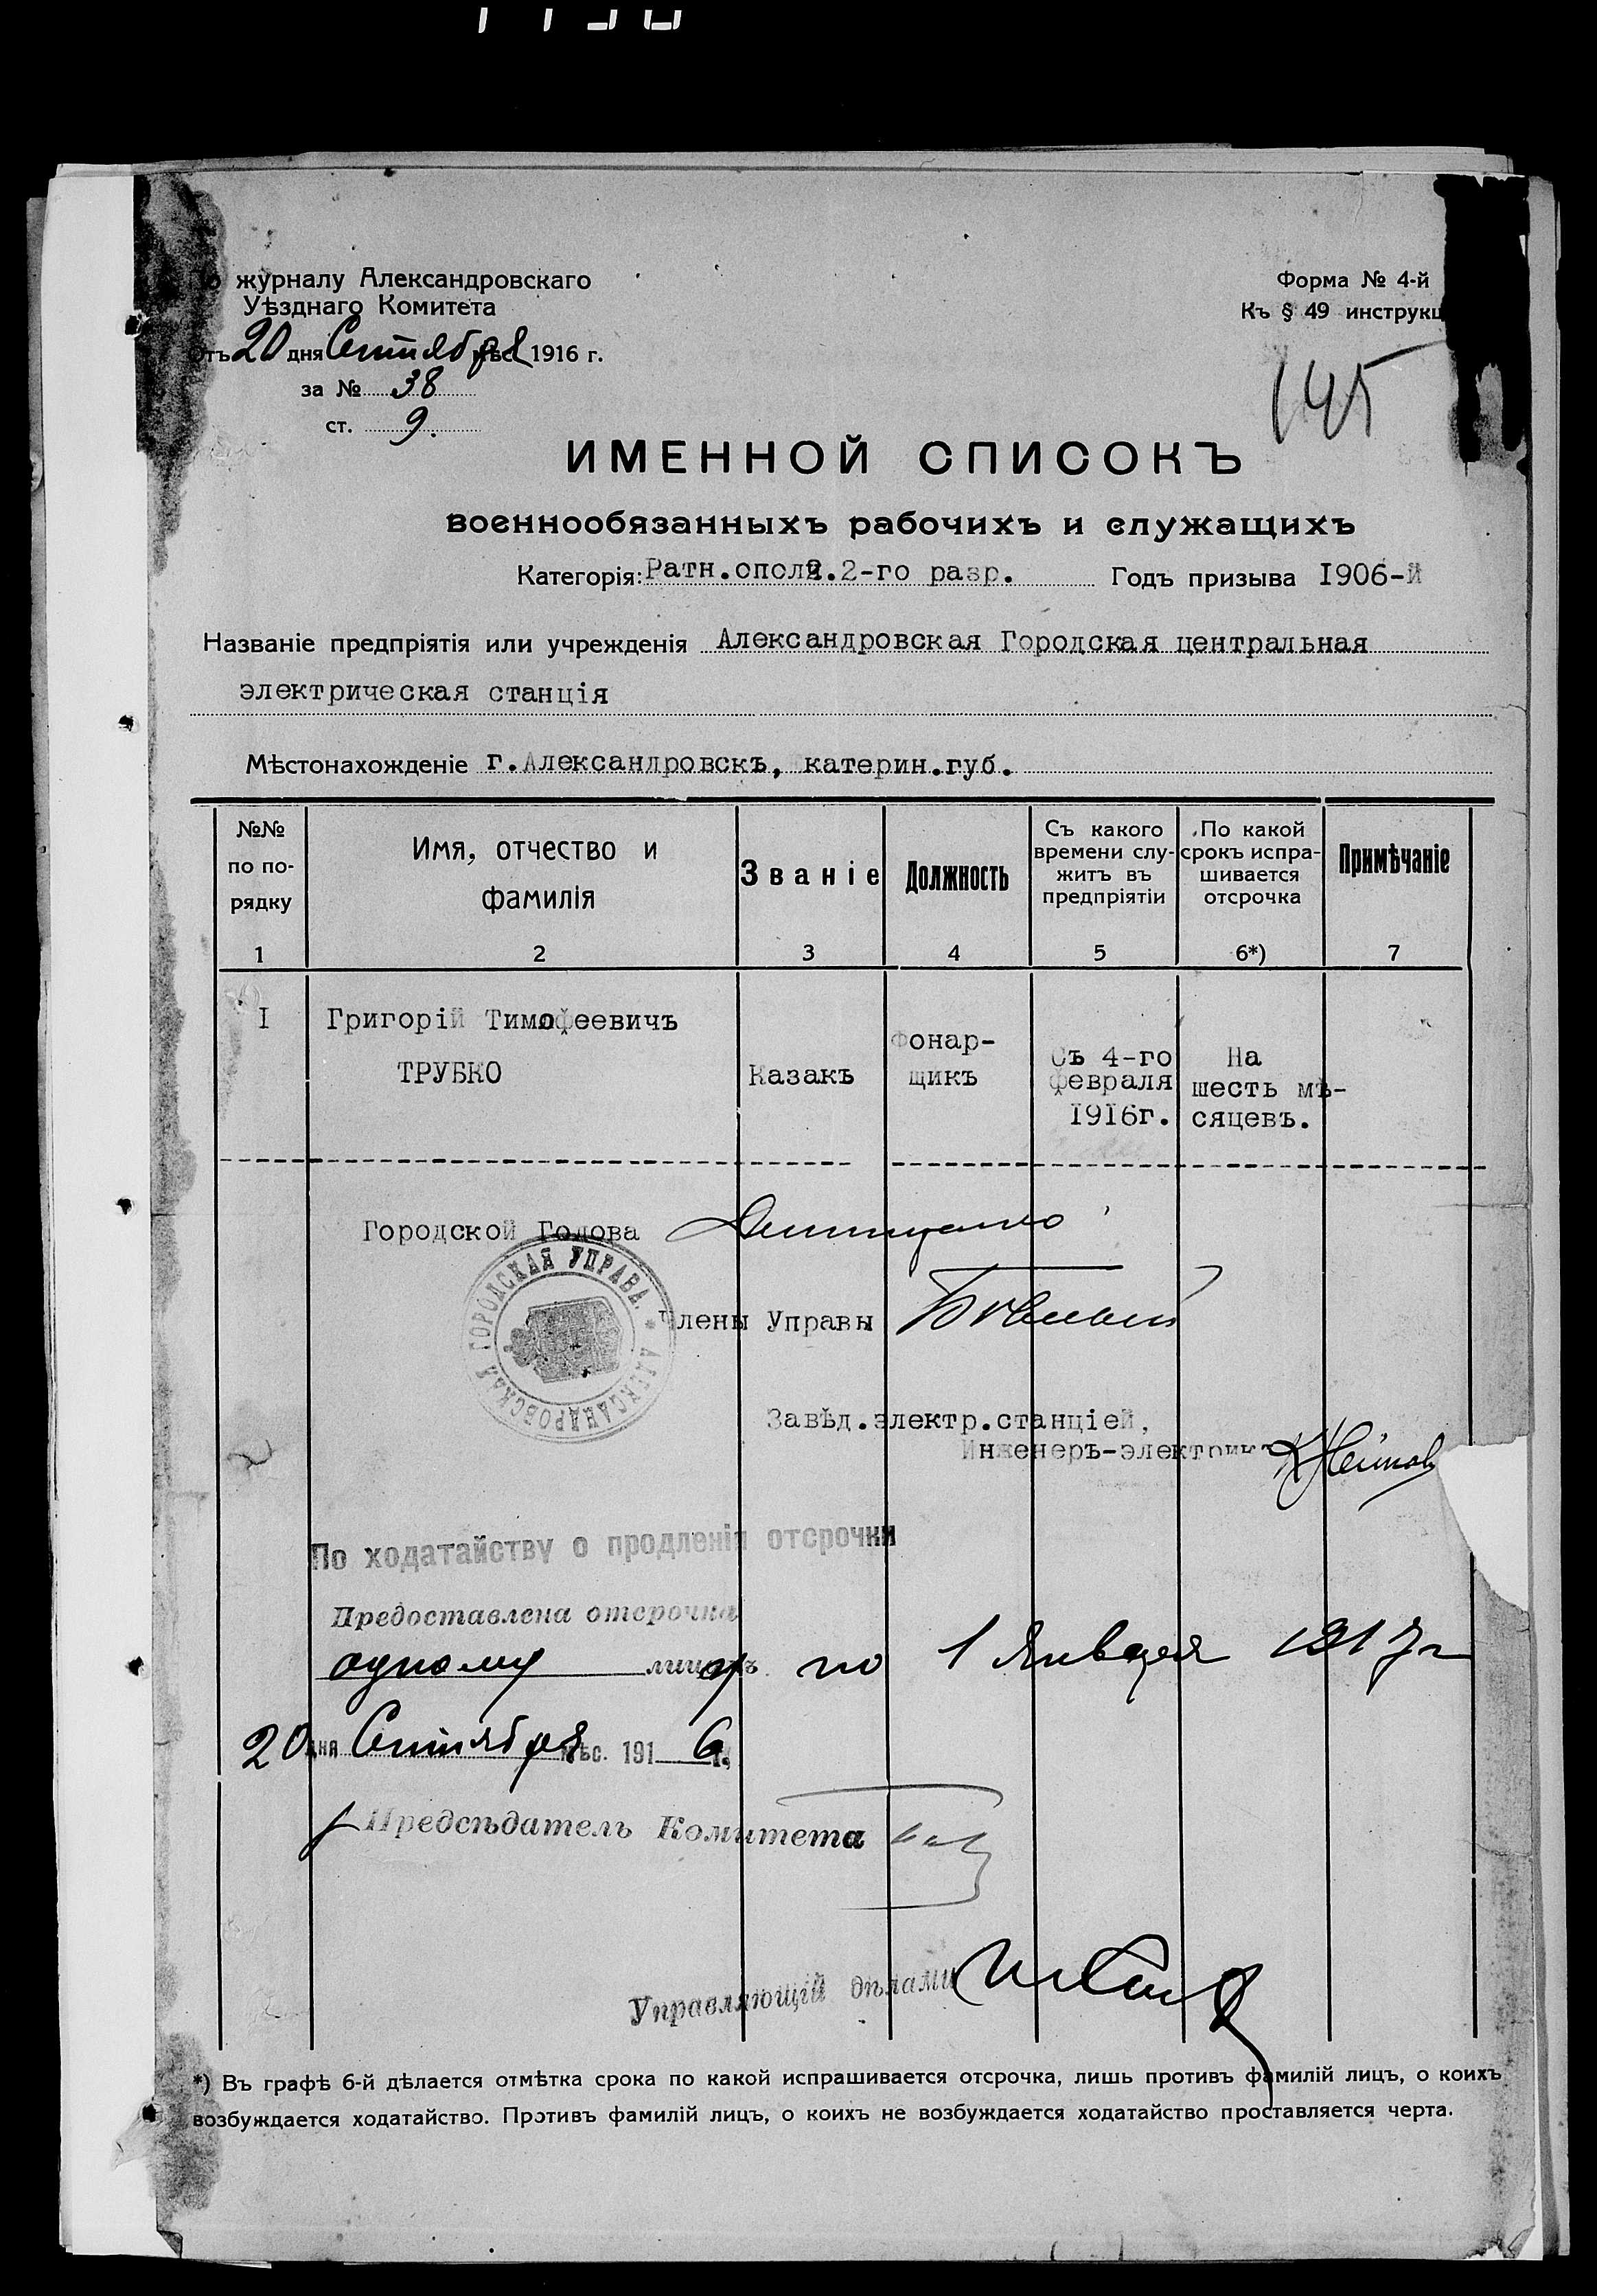 журналу Александровскаго
Уѣзднаго Комитета
отъ 20 дня Сентября мѣс. 1916 г.
за № 38
ст. 9.
Форма № 4-й
Къ § 49 инструкц
145
ИМЕННОЙ СПИСОКЪ
военнообязанныхъ рабочихъ и служащихъ
Категорія: Ратн.опол. 2-го разр. Годъ призыва 1906-й
Названіе предпріятія или учрежденія Александровская Городская центральная
электрическая станція
Мѣстонахожденіе г.Александровскъ, катерин.губ.
№№ по по- рядку
Имя, отчество и фамилія
Званіе
Должность
Съ какого времени слу- житъ въ предпріятіи
По какой срокъ испра- шивается отсрочка
Примѣчаніе
1 2 3 4 5 6*) 7
I
Григорій Тимофеевичъ
ТРУБКО
Казакъ
Фонар-
щикъ
Съ 4-го
февраля
1916г.
На
шесть мѣ-
сяцевъ.
Городской Голова
АЛЕКСАНДРОВСКАЯ ГОРОДСКАЯ УПРАВА.
Члены Управы
Завѣд.электр.станціей,
Инженеръ-электрикъ
По ходатайству о продленіи отсрочки
Предоставлена отсрочка
одному лицу по 1 Января 1917 г
20 дня Сентября мѣс. 1916 г.
Предсѣдатель Комитета
Управляющій дѣлами
*) Въ графѣ 6-й дѣлается отмѣтка срока по какой испрашивается отсрочка, лишь противъ фамилій лицъ, о коихъ
возбуждается ходатайство. Противъ фамилій лицъ, о коихъ не возбуждается ходатайство проставляется черта.